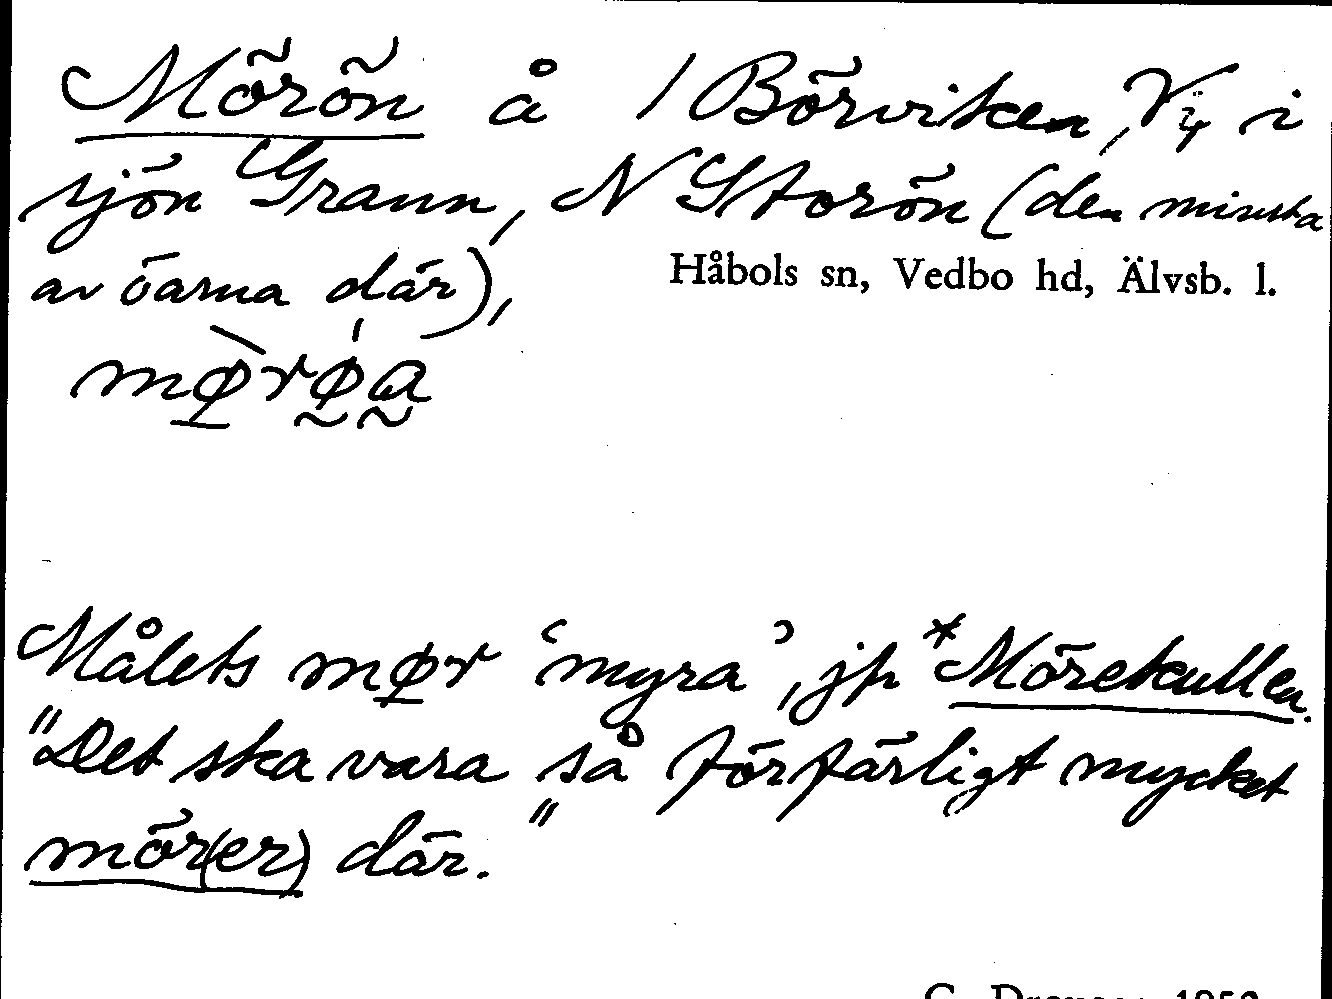 Mörön å / Börviken, V i
sjön Grann, N Storön (den minsta
av öarna där),
Håbols sn, Vedbo hd, Älvsb. l.
mørøa
Målets mør ‘myra’, jfr *Mörekullen.
"Det ska vara så förfärligt mycket
mör(er) där."